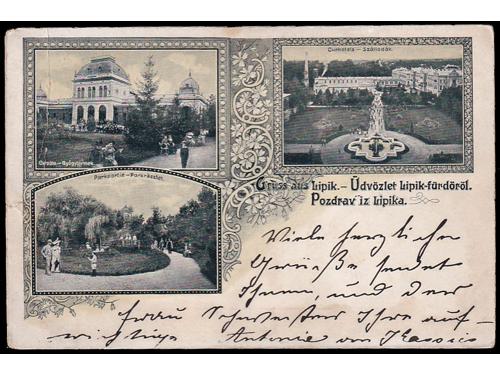 Cursalon – Gyógytermek
Curhotels – Szállodák.
Parkpartie – Park-részlet.
Gruss aus Lipik. – Üdvözlet Lipik-fürdőről.
Pozdrav iz Lipika.
Viele herzliche
Grüße sendet
Ihnen, und der
Frau Schwester Ihre auf-
richtige Antonie von